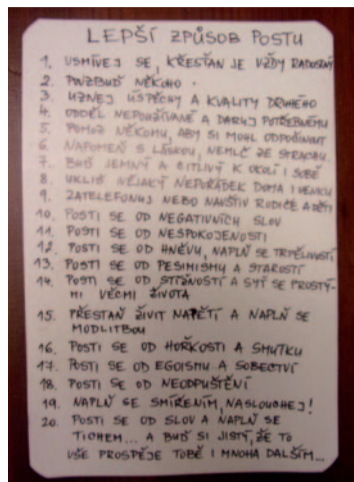 LEPŠÍ ZPŮSOB POSTU
1. USMÍVEJ SE, KŘESŤAN JE VŽDY RADOSTNÝ
2. POVZBUĎ NĚKOHO.
3. UZNEJ ÚSPĚCHY A KVALITY DRUHÉHO
4. ODDĚL NEPOUŽÍVANÉ A DARUJ POTŘEBNÉMU
5. POMOZ NĚKOMU, ABY SI MOHL ODPOČINOUT
6. NAPOMEŇ S LÁSKOU, NEMLČ ZE STRACHU.
7. BUĎ JEMNÝ A CITLIVÝ K OKOLÍ I SOBĚ
8. UKLIĎ NĚJAKÝ NEPOŘÁDEK DOMA I VENKU
9. ZATELEFONUJ NEBO NAVŠTIV RODIČE A DĚTI
10. POSTI SE OD NEGATIVNÍCH SLOV
11. POSTI SE OD NESPOKOJENOSTI
12. POSTI SE OD HNĚVU, NAPLŇ SE TRPĚLIVOSTÍ
13. POSTI SE OD PESIMISMU A STAROSTÍ
14. POSTI SE OD STÍŽNOSTÍ A SYŤ SE PROSTÝ-
MI VĚCMI ŽIVOTA
15. PŘESTAŇ ŽIVIT NAPĚTÍ A NAPLŇ SE
MODLITBOU
16. POSTI SE OD HOŘKOSTI A SMUTKU
17. POSTI SE OD EGOISMU A SOBECTVÍ
18. POSTI SE OD NEODPUŠTĚNÍ
19. NAPLŇ SE SMÍŘENÍM, NASLOUCHEJ!
20. POSTI SE OD SLOV A NAPLŇ SE
TICHEM... A BUĎ SI JISTÝ, ŽE TO
VŠE PROSPĚJE TOBĚ I MNOHA DALŠÍM...